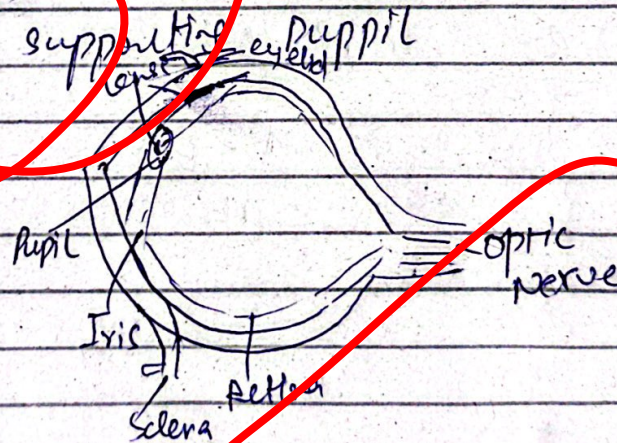 supporting puppil
Lens eyelid
Pupil
optic
nerve
Iris
Retina
Sclera